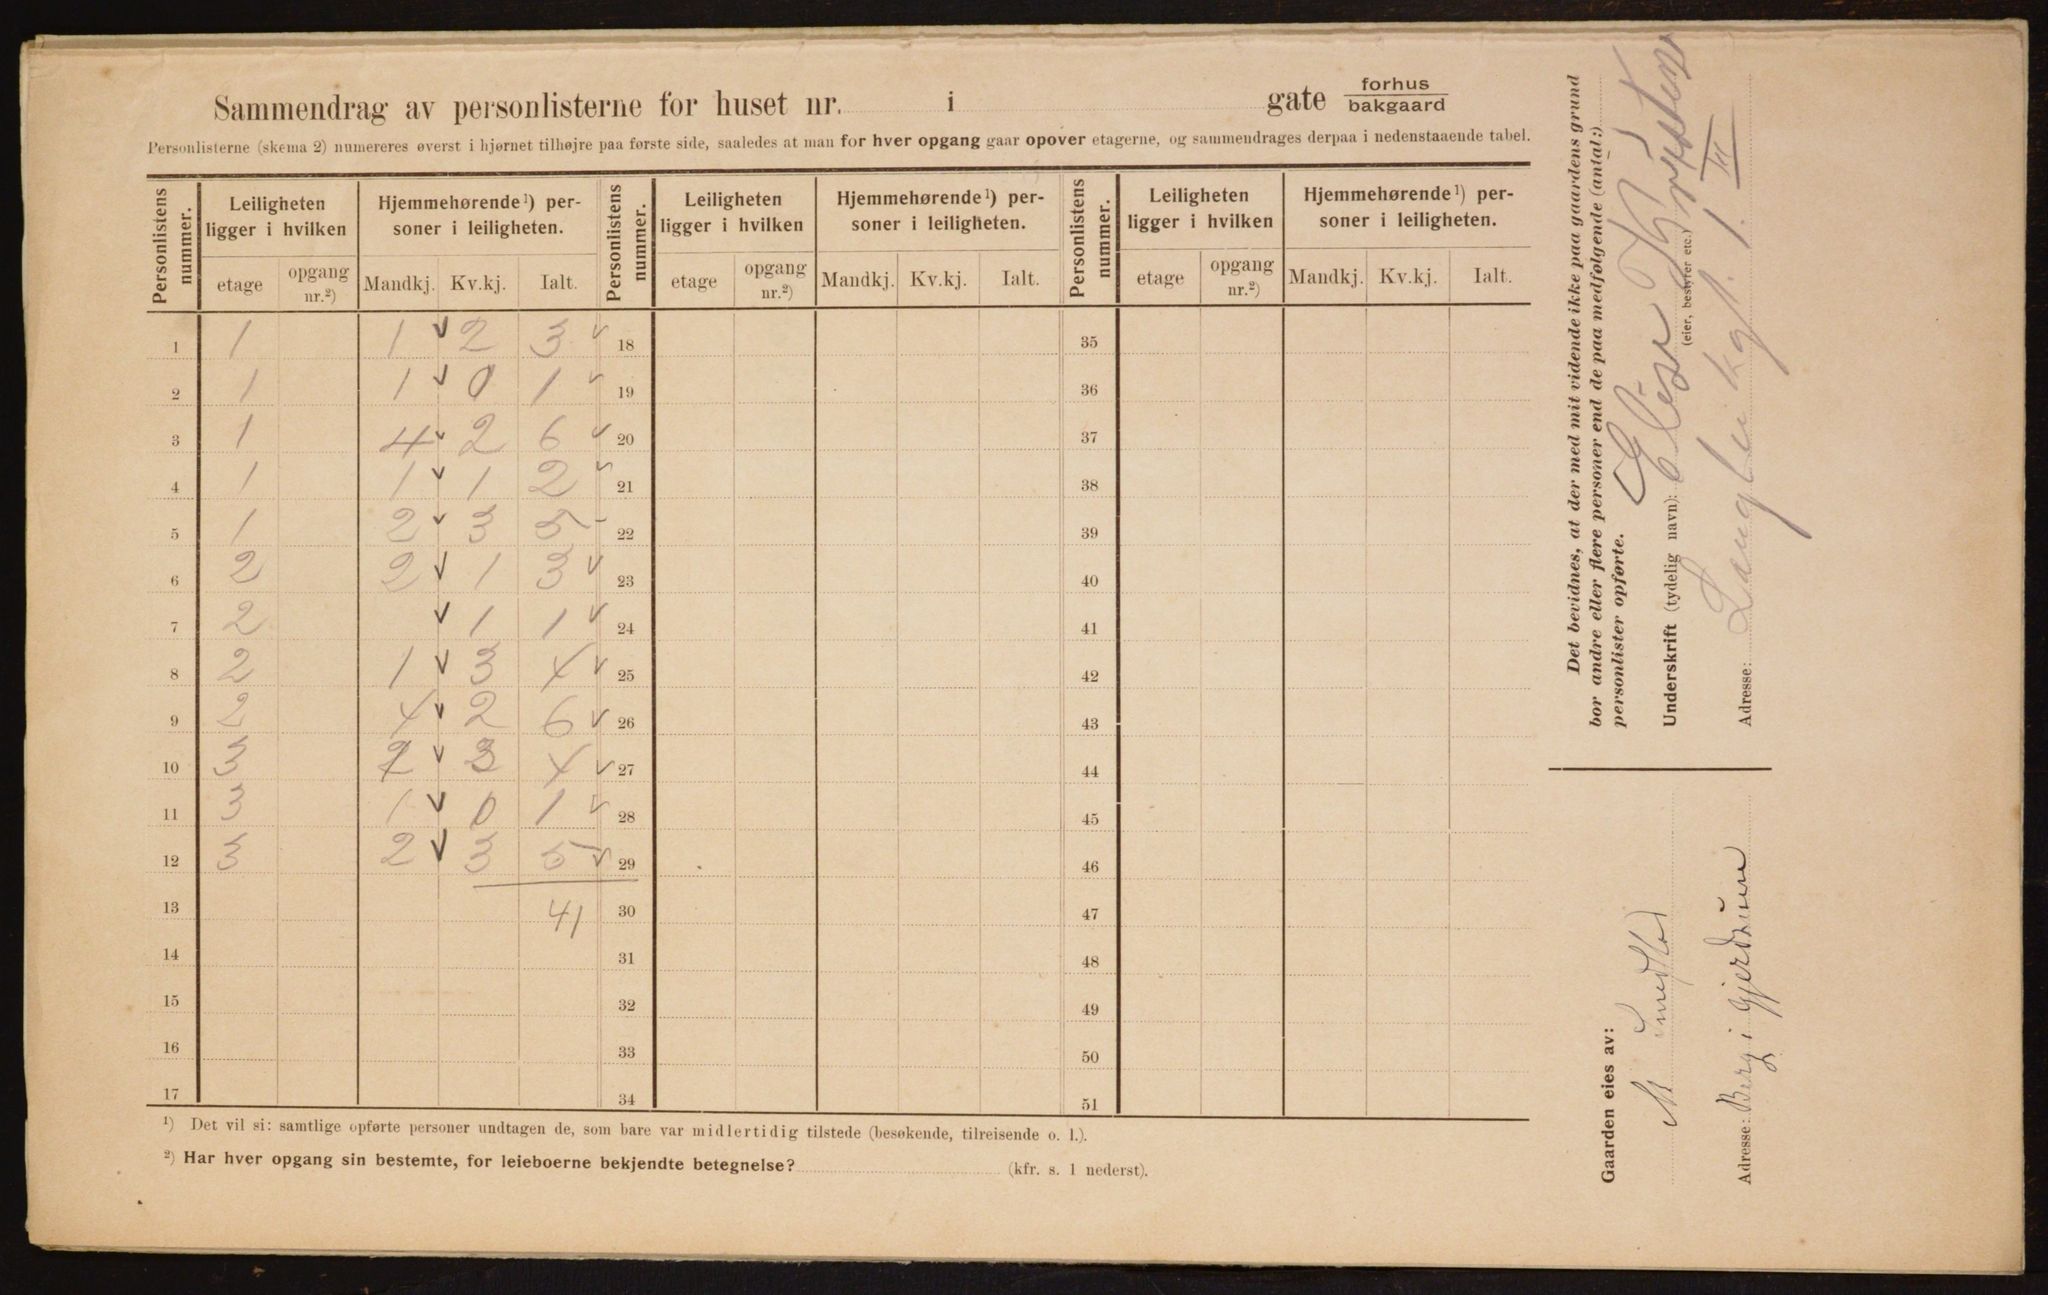 Sammendrag av personlisterne for huset nr. i gate forhus
bakgaard
Personlisterne (skema 2) numereres øverst i hjørnet tilhøjre paa første side, saaledes at man for hver opgang gaar opover etagerne, og sammendrages derpaa i nedenstaaende tabel.
Personlistens nummer. Leiligheten ligger i hvilken Hjemmehørende¹) personer i leiligheten. Personlistens nummer. Leiligheten ligger i hvilken Hjemmehørende¹) personer i leiligheten. Personlistens nummer. Leiligheten ligger i hvilken Hjemmehørende¹) personer i leiligheten.
etage opgang nr.²) Mandkj. Kv.kj. Ialt. etage opgang nr.²) Mandkj. Kv.kj. Ialt. etage opgang nr.²) Mandkj. Kv.kj. Ialt.
1 1 1 2 3 18 35
2 1 1 0 1 19 36
3 1 4 2 6 20 37
4 1 1 1 2 21 38
5 1 2 3 5 22 39
6 2 2 1 3 23 40
7 2 1 1 24 41
8 2 1 3 4 25 42
9 2 4 2 6 26 43
10 3 2 4 27 44
11 3 1 0 1 28 45
12 3 2 3 5 29 46
13 41 30 47
14 31 48
15 32 49
16 33 50
17 34 51
¹) Det vil si: samtlige opførte personer undtagen de, som bare var midlertidig tilstede (besøkende, tilreisende o. l.).
²) Har hver opgang sin bestemte, for leieboerne bekjendte betegnelse? (kfr. s. 1 nederst).
Det bevidnes, at der med mit vidende ikke paa gaardens grund
bor andre eller flere personer end de paa medfølgende (antal:)
personlister opførte.
Underskrift (tydelig navn):
(eier, bestyrer etc.)
Adresse: 1. III
Gaarden eies av:
Adresse: Berg i Gjerdrum